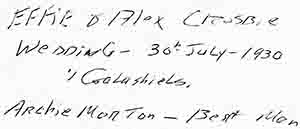 EFFIE & Alex Crosbie
Wedding - 30th July - 1930
" Galashiels.
Archie Morton - Best Man